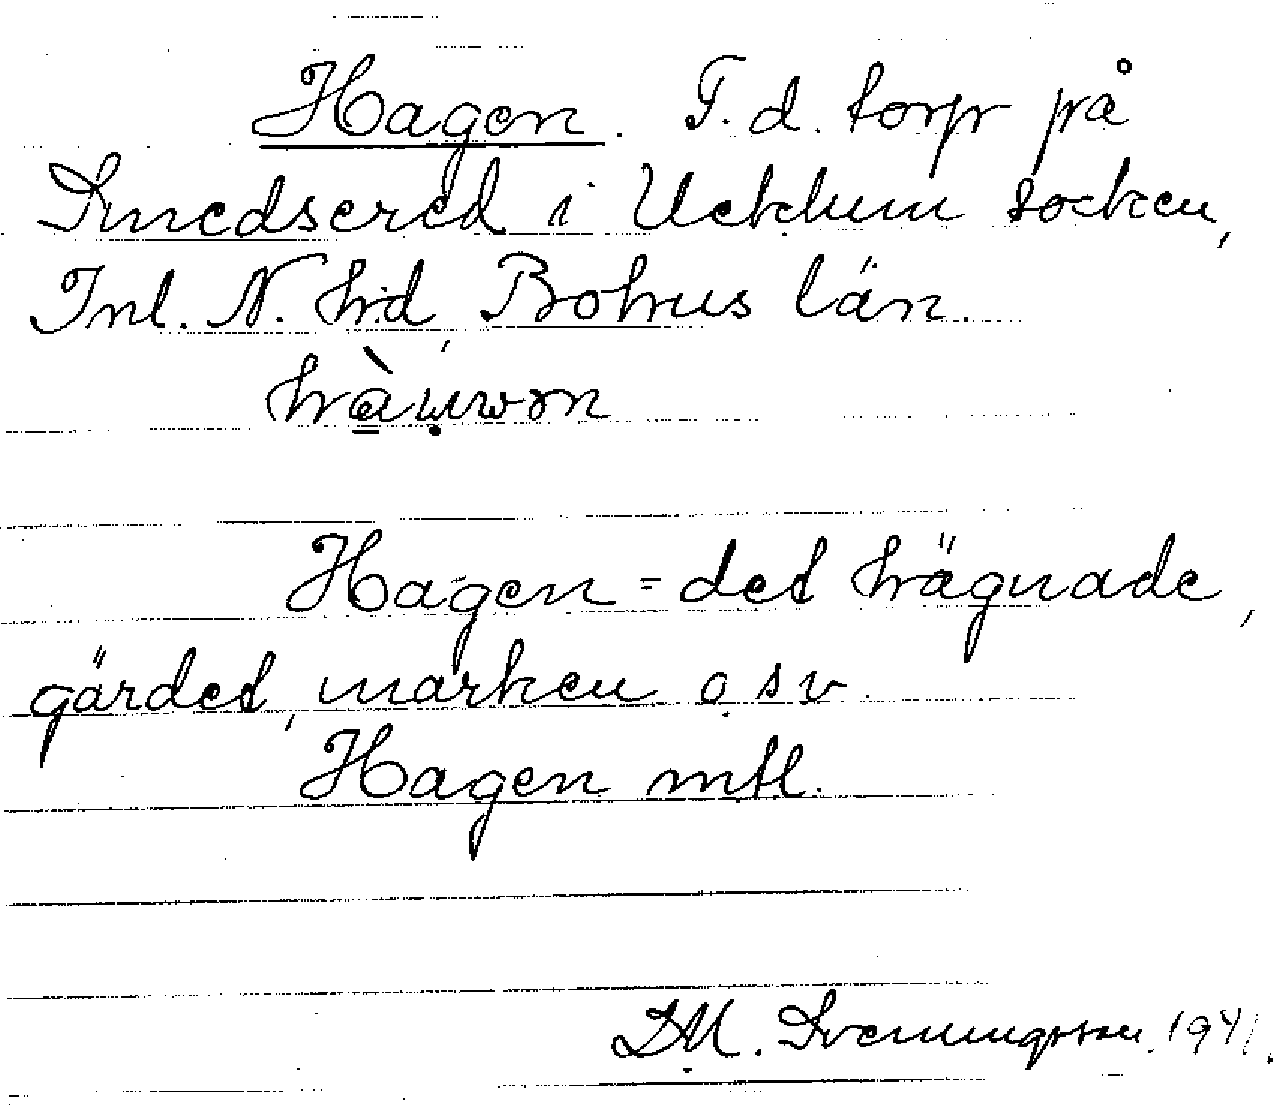 Hagen. F. d. torp på
Smedsered i Ucklum socken,
Inl. N. hd, Bohus län.
Hagen = det hägnade,
gärdet, marken o s v.
Hagen mtl.
D.M. Sveningsson. 1941.